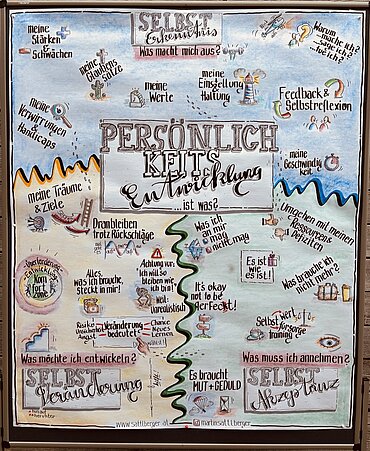 SELBST
Erkenntnis
Was macht mich aus?
meine
Stärken
&
Schwächen
meine
Glaubens
sätze
meine
Werte
meine
Einstellung
Haltung
Warum
...mache ich
...sage ich
...bin ich?
Feedback &
Selbstreflexion
meine
Verwirrungen
&
Handicaps
meine
Geschwindig
keit
PERSÖNLICH
KEITS
Entwicklung
...ist was?
meine Träume
& Ziele
Dranbleiben
trotz Rückschläge
Was ich
an mir
mag
nicht mag
Umgehen mit meinen
Ressourcen
defiziten
Entwicklung
Kom
fort
zone
Alles,
was ich brauche,
steckt in mir!
Achtung vor:
Ich will so
bleiben wie
ich bin
weil:
unrealistisch
Es ist
wie
es ist!
Was brauche ich
nicht mehr?
It's okay
not to be
perfect!
Risiko
Unsicherheit
Angst
Veränderung
bedeutet
Chance
Neues
Lernen
Mut
Selbst
wert
fürsorge
training
Was möchte ich entwickeln?
SELBST
Veränderung
Es braucht
MUT + GEDULD
Was muss ich annehmen?
SELBST
Akzeptanz
www.sattlberger.at
martinsattlberger